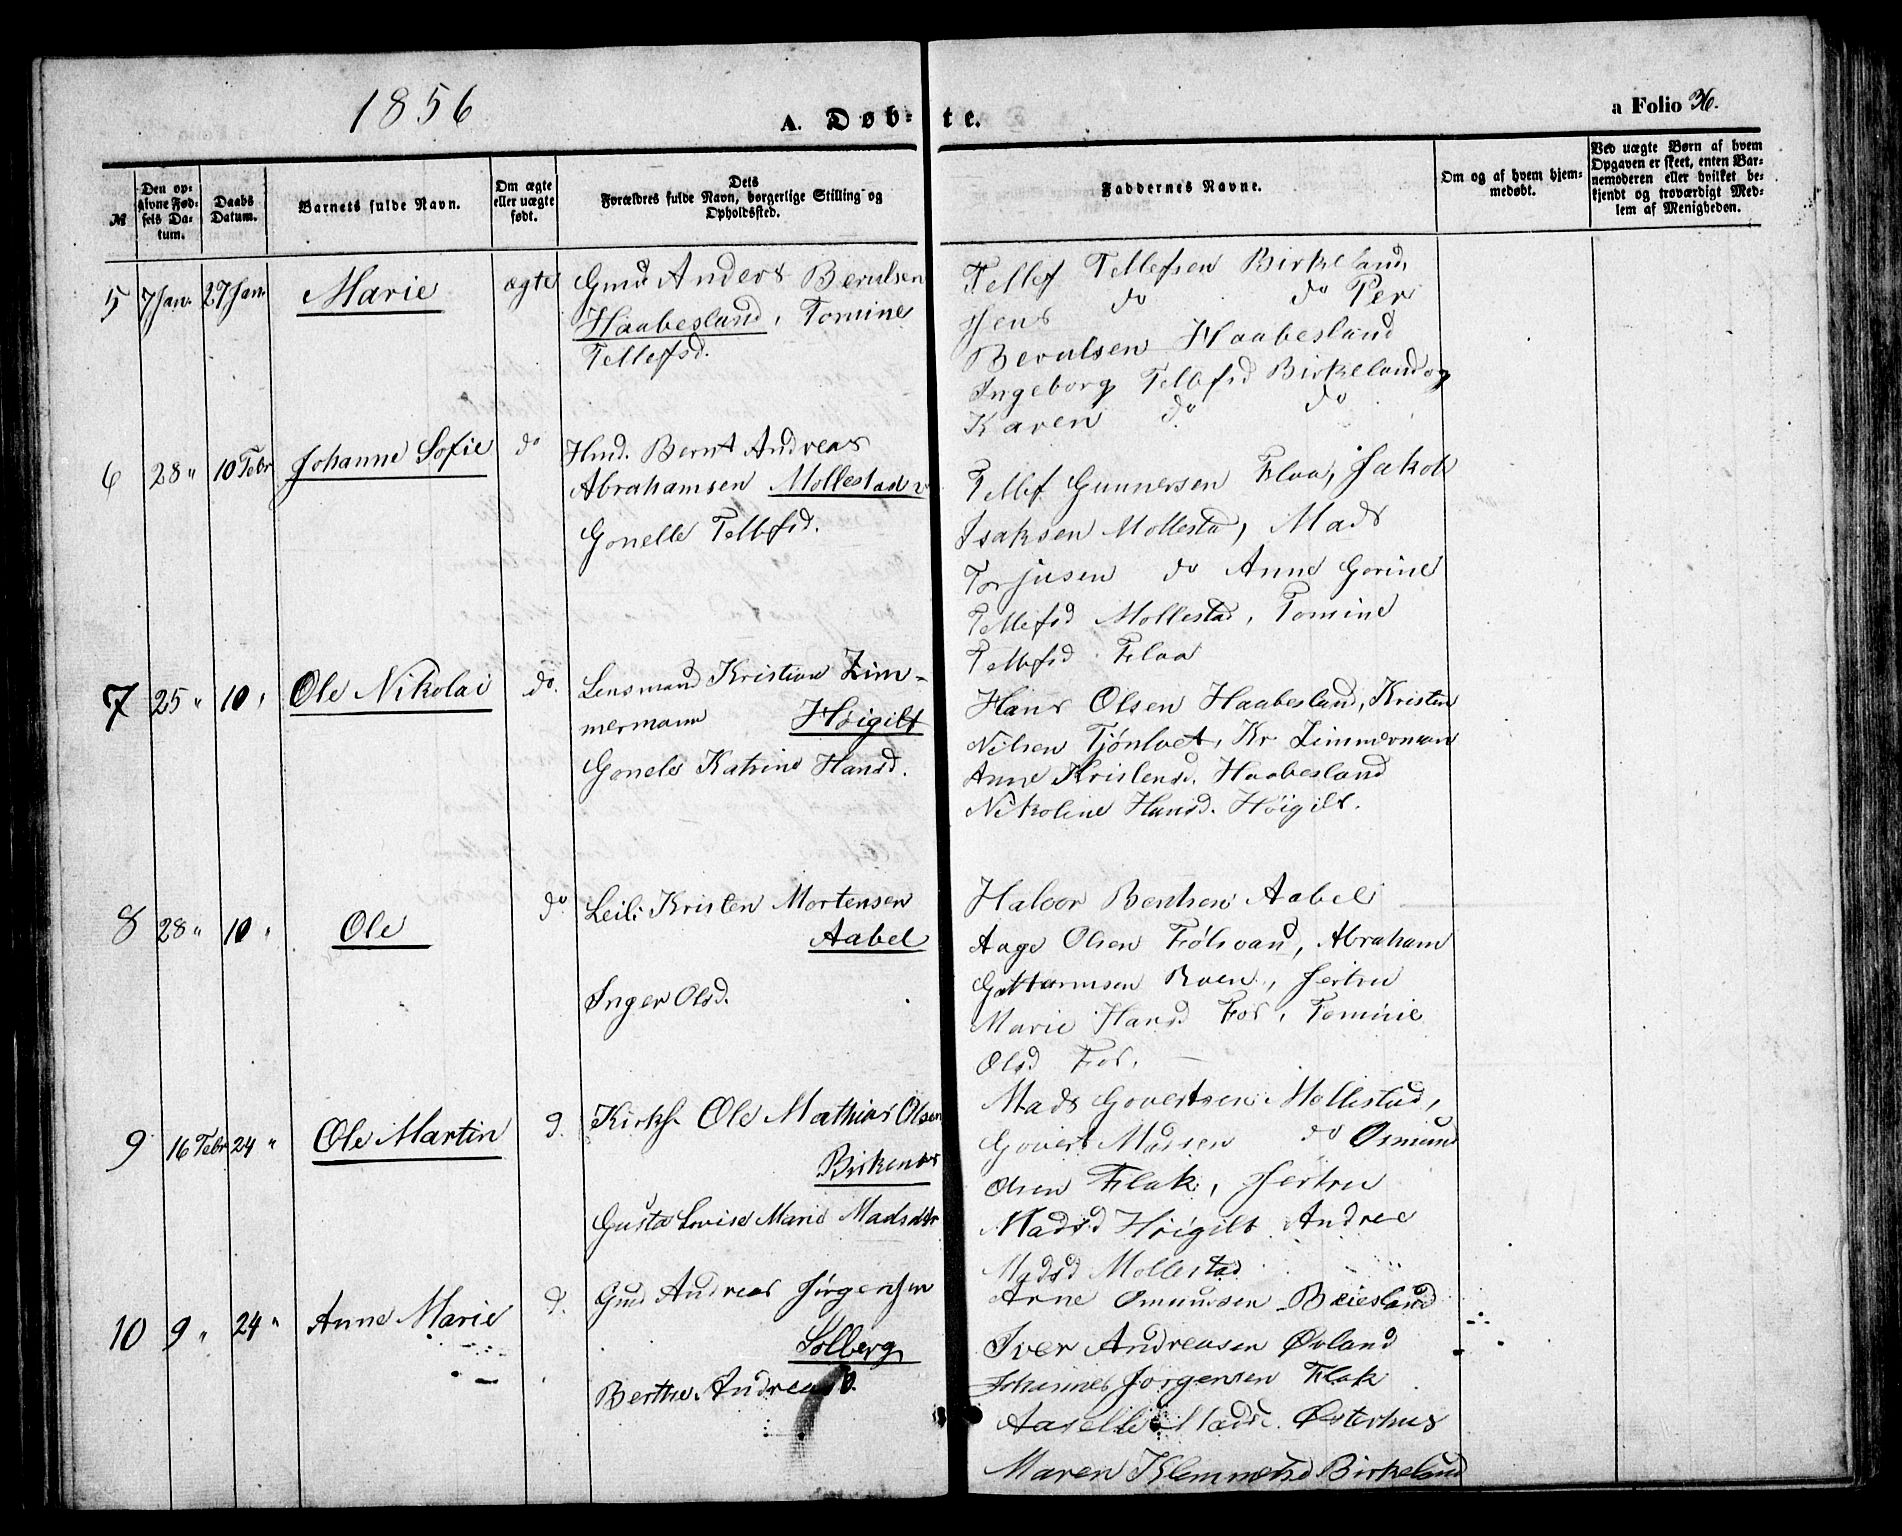 1856
A. Døb- te.
a Folio 36.
№
Den op-
givne Fød-
sels Da-
tum.
Daabs
Datum.
Barnets fulde Navn.
Om ægte
eller uægte
født.
Dets
Forældres fulde Navn, borgerlige Stilling og
Opholdssted.
Faddernes Navne.
Om og af hvem hjem-
medøbt.
Ved uægte Børn af hvem
Opgaven er skeet, enten Bar-
nemoderen eller hvilket be-
kjendt og troværdigt Med-
lem af Menigheden.
5 7 Jan. 27 Jan. Marie ægte Gmd Anders Berulsen
Haabesland, Tomine
Tellefsd.
Tellef Tellefsen Birkeland,
Jens do do Per
Berulsen Haabesland
Ingeborg Tellefsd Birkeland og
Karen do do
6 28 " 10 Febr Johanne Sofie do Hmd. Bernt Andreas
Abrahamsen Mollestad
Gonelle Tellefsd.
Tellef Gunnersen Flaa, Jakob
Isaksen Mollestad, Mads
Torjusen do Anne Gorine
Tellefsd Mollestad, Tomine
Tellefsd Flaa
7 25 " 10 " Ole Nikolai do. Lensmand Kristian Zim-
mermann Høigilt
Gonele Katrine Hansd.
Hans Olsen Haabesland, Kristen
Nilsen Tjønlvet, Kr Zimmerman
Anne Kristensd. Haabesland
Nikoline Hansd. Høigilt.
8 28 " 10 " Ole do Leil: Kristen Mortensen
Aabel
Inger Olsd.
Halvor Bentsen Aabel
Aage Olsen Følsvand, Abraham
Guttormsen Roen, Jertru
Marie Hansd Fos, Tomine
Olsd Fos.
9 16 Febr 24 " Ole Martin d. Kirks. Ole Mathias Olsen
Birkenes
Gusta Lovise Marie Madsdtr
Mads Govertsen Mollestad,
Govert Madsen do Osmund
Olsen Flak, Jertru
Madsd Høigilt Andree
Madsd Mollestad
10 9 " 24 " Anne Marie d. Gmd Andreas Jørgensen
Solberg
Berthe Andreasd.
Arne Omundsen Beiesland
Iver Andreasen Øvland
Johannes Jørgensen Flak
Aaselle Madsd. Østerhus
Maren Klemmetsd Birkeland